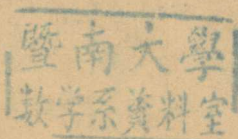 暨南大學
数学系資料室